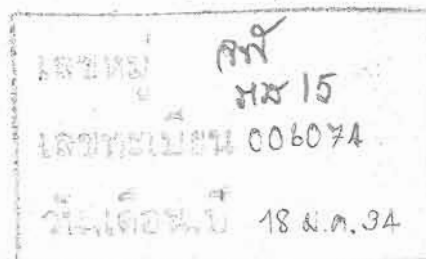 เลขหมู่ วพ
มส 15
เลขทะเบียน 006074
วันเดือนปี 18 ม.ค. 34